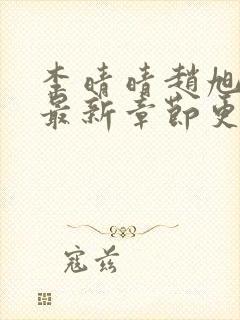 李晴晴趙旭
最新章節更
寇兹